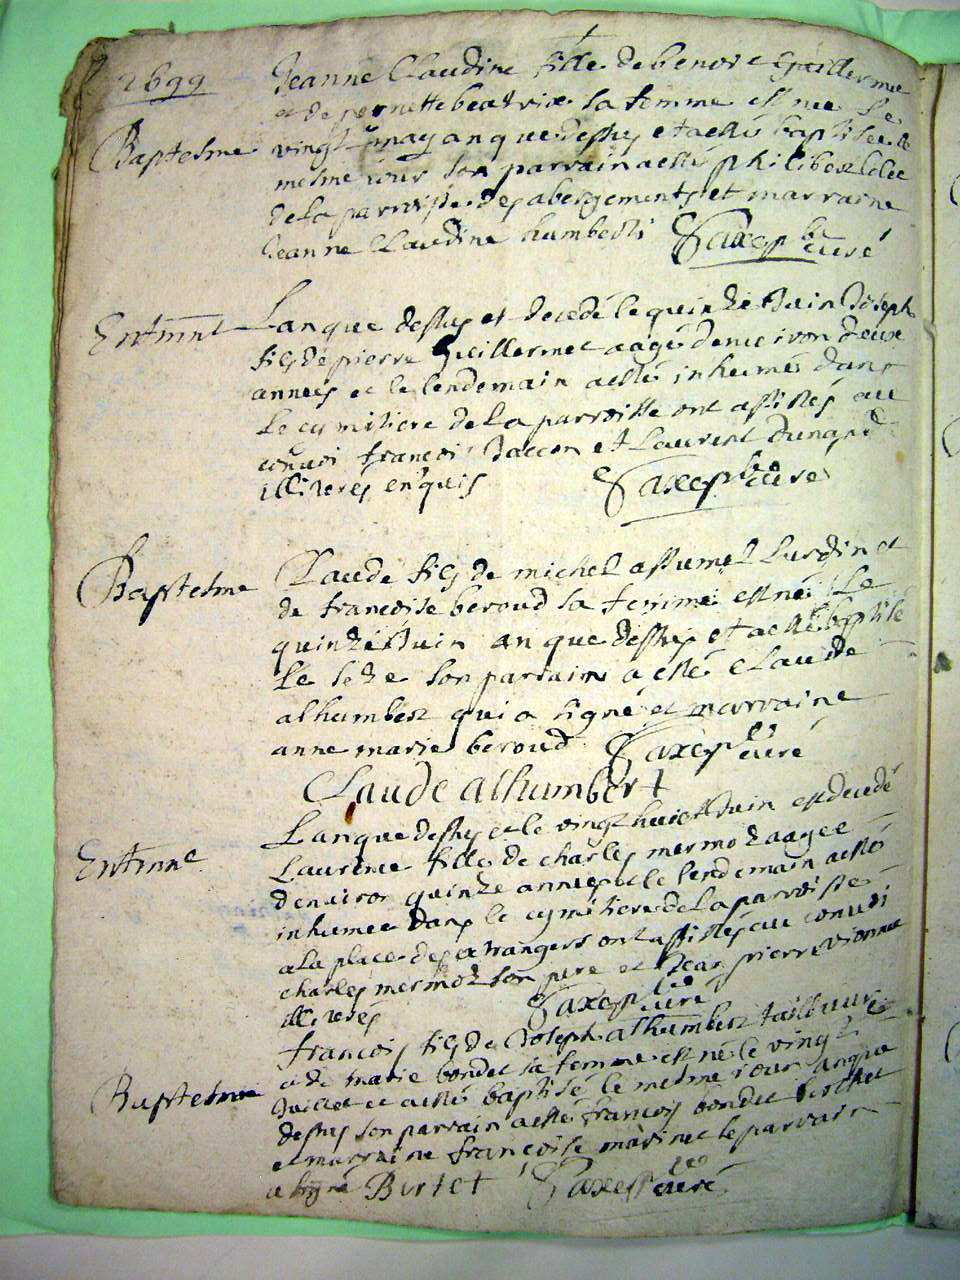 1699
Jeanne Claudine fille de benoit Guillermet
et de pernette beatrix sa femme est nee le
Baptesme
vingt may an que dessus et a esté baptisée le
mesme iour son parrain a esté philibert
de la parroisse des abergements et marraine
Jeanne Claudine humbert curé
Enterrmt
L an que dessus et decedé le quinze Juin Joseph
fils de pierre Guillermet aagé denviron deux
annees et le lendemain a esté inhumé dans
le cymitiere de la parroisse ont assistés au
convoi francois et Laurent
illiteres enquis curé
Baptesme
Claude fils de michel assumel Lurdin et
de francoise beroud sa femme est né le
quinze Juin an que dessus et a esté baptisé
le seize son parrain a esté Claude
alhumbert qui a signé et marraine
anne marie beroud curé
Claude alhumbert
L an que dessus et le vingt huict Juin est decedé
Enterrme
Laurence fille de charles mermoz aagee
denviron quinze annees et le lendemain a esté
inhumee dans le cymitiere de la parroisse
a la place des etrangers ont assistés au convoi
charles mermoz son pere et Jean pierre vionnet
illiterés curé
francois fils de Joseph alhumbert tailleur
et de marie bondet sa femme est né le vingt
Baptesme
Juillet et a esté baptisé le mesme iour an que
dessus son parrain a esté francois bondet
et marraine francoise marinet le parrain
a signé Burtet curé